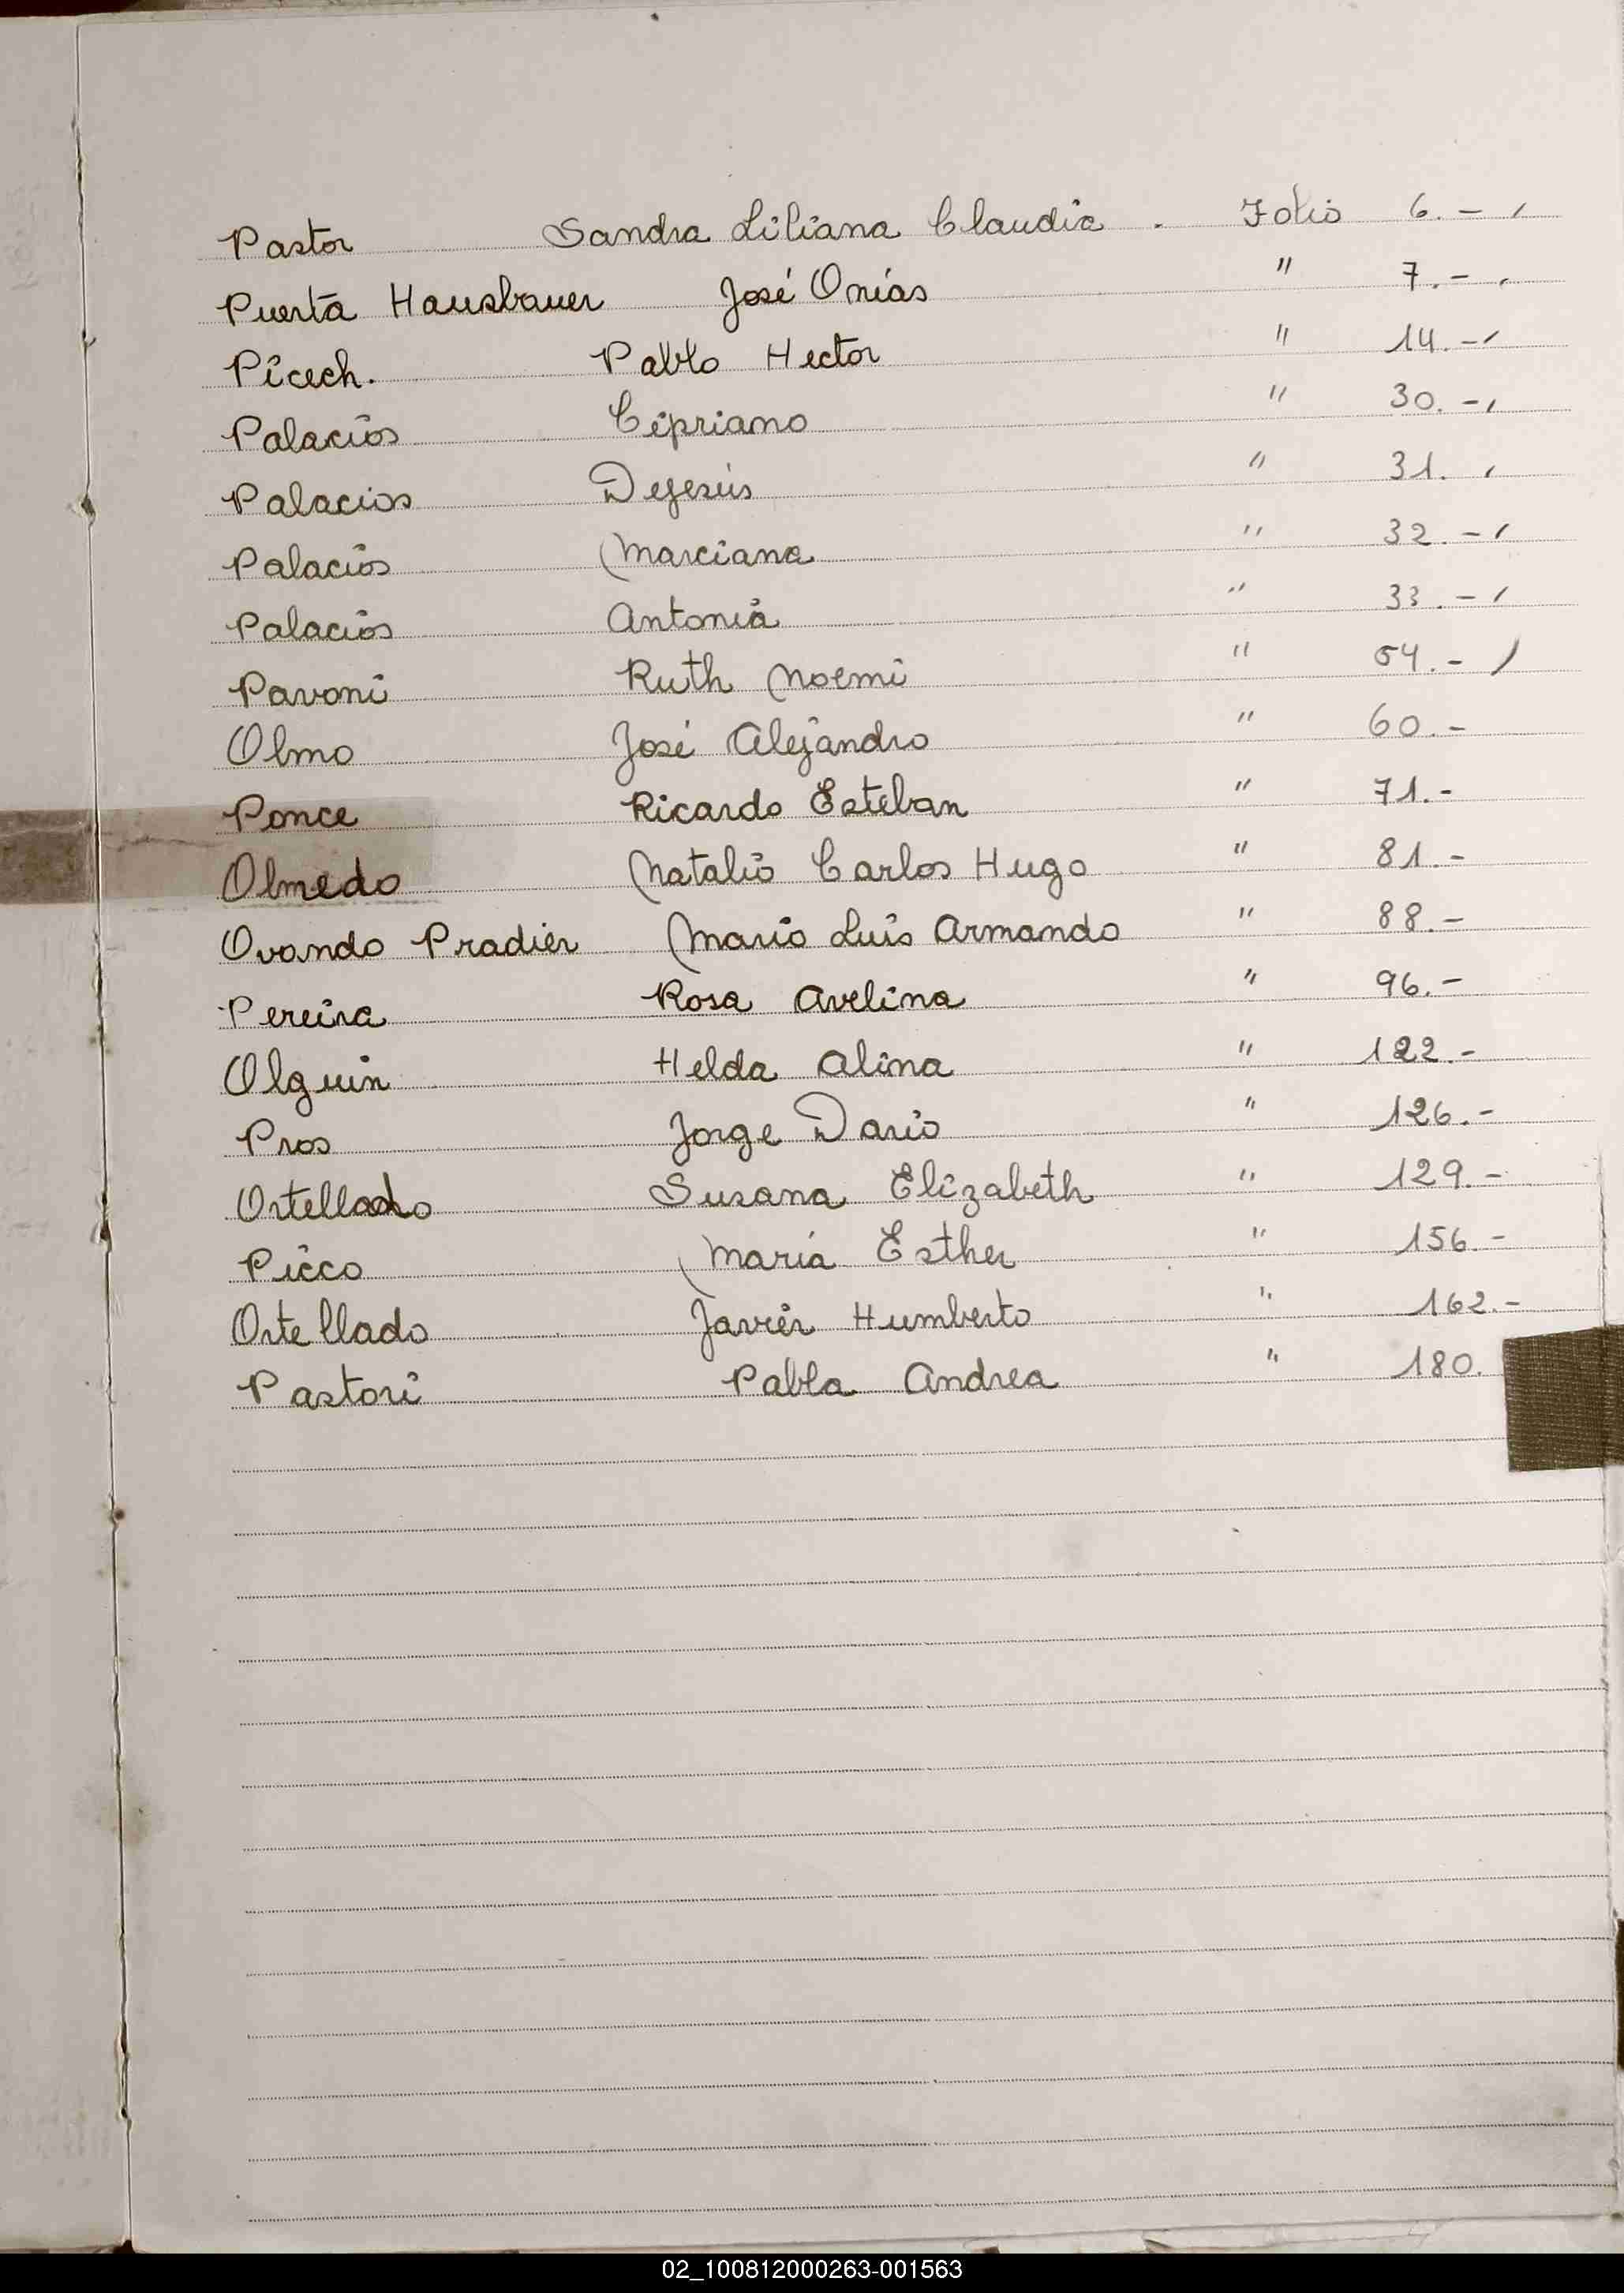 Pastor Sandra Liliana Claudia . Folio 6. -
Puerta Hausbauer José Onias " 7. -
Picech. Pablo Hector " 14. -
Palacios Cipriano " 30. -
Palacios Dejesús " 31.
Palacios Marciana " 32. -
Palacios Antonia " 33. -
Pavoni Ruth Noemi " 54. -
Olmo José Alejandro " 60. -
Ponce Ricardo Esteban " 71. -
Olmedo Natalio Carlos Hugo " 81. -
Ovando Pradier Mario Luis Armando " 88. -
Pereira Rosa Avelina " 96. -
Olguin Helda Alina " 122. -
Pros Jorge Dario " 126. -
Ortellado Susana Elizabeth " 129. -
Picco María Esther " 156 -
Ortellado Javier Humberto " 162. -
Pastori Pabla Andrea " 180.
02_100812000263-001563